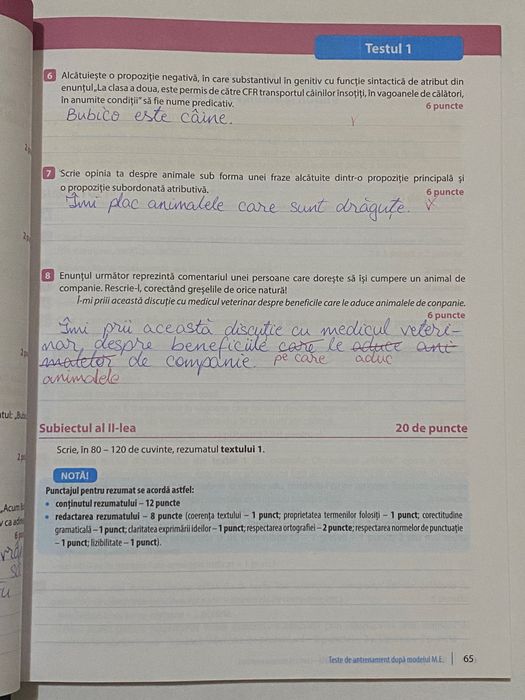 Testul 1
6 Alcătuiește o propoziție negativă, în care substantivul în genitiv cu funcție sintactică de atribut din
enunțul „La clasa a doua, este permis de către CFR transportul câinilor însoțiți, în vagoanele de călători,
în anumite condiții” să fie nume predicativ.
6 puncte
Bubico este câine.
7 Scrie opinia ta despre animale sub forma unei fraze alcătuite dintr-o propoziție principală și
o propoziție subordonată atributivă.
6 puncte
Îmi plac animalele care sunt drăguțe.
8 Enunțul următor reprezintă comentariul unei persoane care dorește să își cumpere un animal de
companie. Rescrie-l, corectând greșelile de orice natură!
Î-mi priii această discuție cu medicul veterinar despre beneficiile care le aduce animalele de conpanie.
6 puncte
Îmi prii această discuție cu medicul veteri-
nar, despre beneficiile care le aduce ani-
malelor de companie. pe care aduc
animalele
Subiectul al II-lea
20 de puncte
Scrie, în 80 – 120 de cuvinte, rezumatul textului 1.
NOTĂ!
Punctajul pentru rezumat se acordă astfel:
• conținutul rezumatului – 12 puncte
• redactarea rezumatului – 8 puncte (coerența textului – 1 punct; proprietatea termenilor folosiți – 1 punct; corectitudine
gramaticală – 1 punct; claritatea exprimării ideilor – 1 punct; respectarea ortografiei – 2 puncte; respectarea normelor de punctuație
– 1 punct; lizibilitate – 1 punct).
Teste de antrenament după modelul M.E. | 65